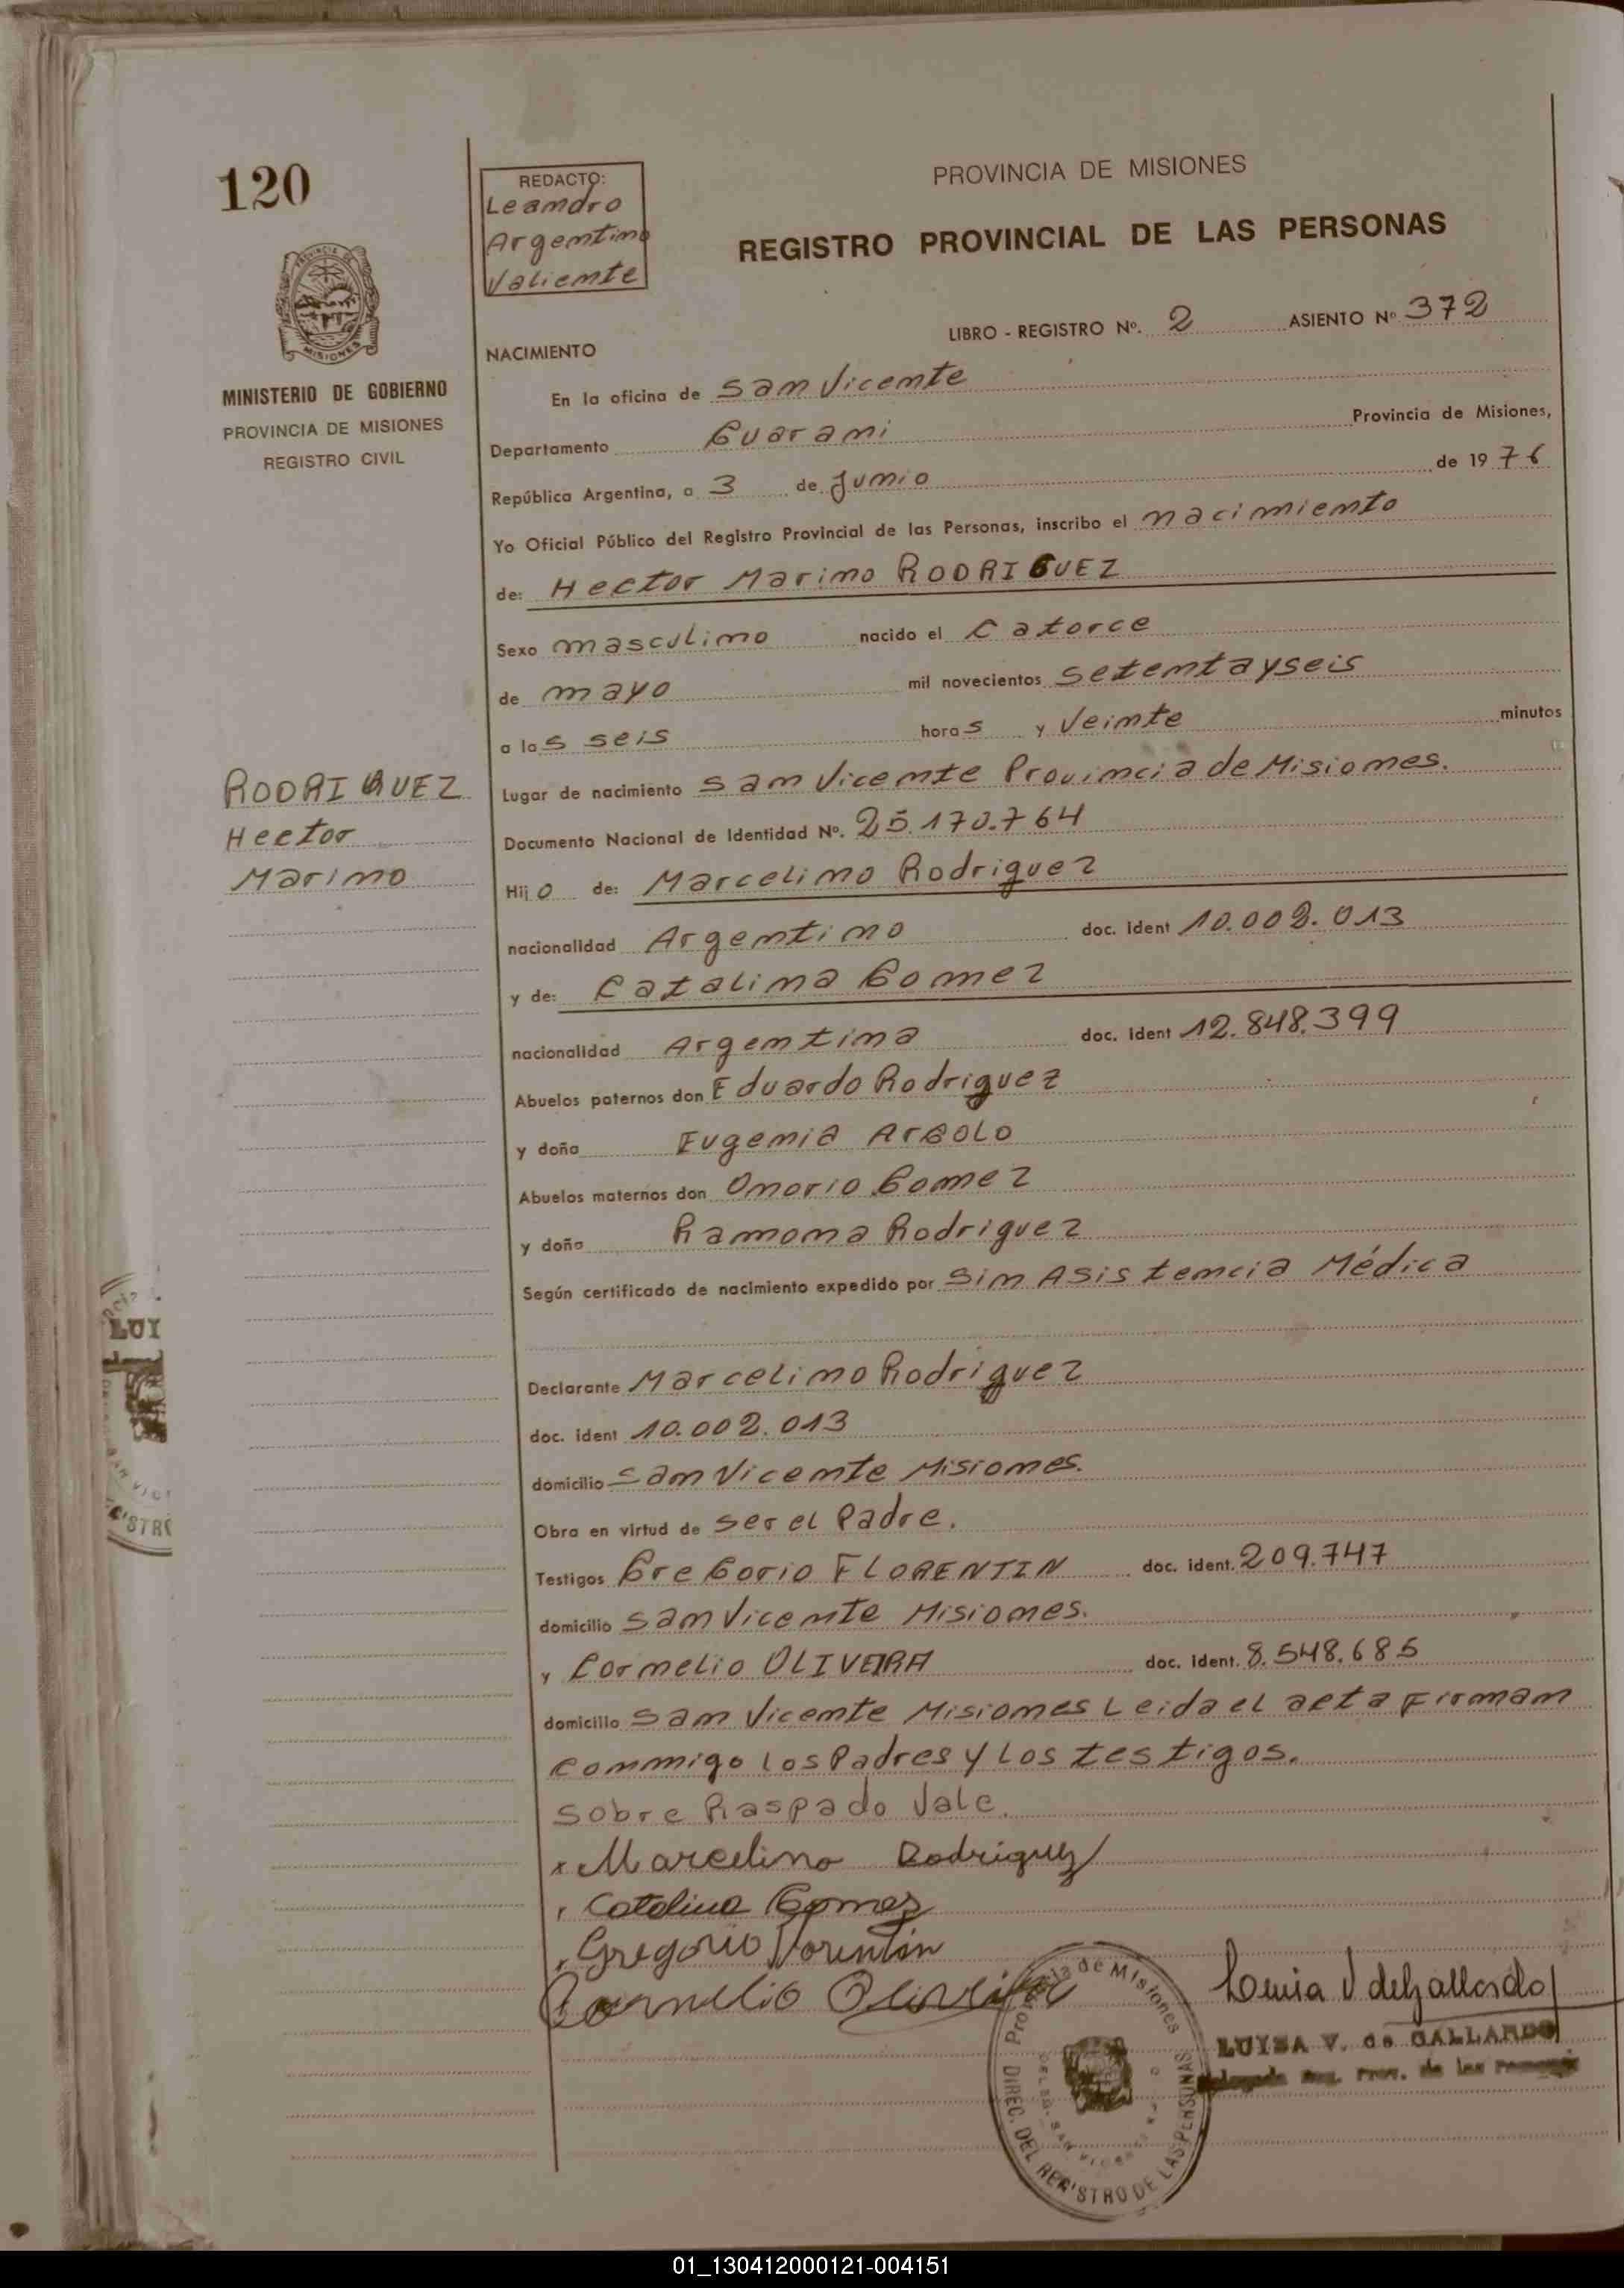 120
REDACTO:
Leandro
Argentino
Valiente
PROVINCIA DE MISIONES
REGISTRO PROVINCIAL DE LAS PERSONAS
MISIONES
MINISTERIO DE GOBIERNO
PROVINCIA DE MISIONES
REGISTRO CIVIL
LIBRO - REGISTRO Nº. 2 ASIENTO Nº 372
NACIMIENTO
En la oficina de San Vicente
Departamento Guarani Provincia de Misiones,
República Argentina, a 3 de Junio de 1976
Yo Oficial Público del Registro Provincial de las Personas, inscribo el nacimiento
de: Hector Marino RODRIGUEZ
Sexo masculino nacido el Catorce
de mayo mil novecientos setentayseis
a las seis horas y Veinte minutos
RODRIGUEZ
Hector
Marino
Lugar de nacimiento San Vicente Provincia de Misiones.
Documento Nacional de Identidad Nº. 25.170.764
Hijo de: Marcelino Rodriguez
nacionalidad Argentino doc. ident 10.002.013
y de: Catalina Gomez
nacionalidad Argentina doc. ident 12.848.399
Abuelos paternos don Eduardo Rodriguez
y doña Eugenia Argolo
Abuelos maternos don Onorio Gomez
y doña Ramona Rodriguez
Según certificado de nacimiento expedido por Sin Asistencia Médica
Declarante Marcelino Rodriguez
doc. ident 10.002.013
domicilio San Vicente Misiones.
Obra en virtud de ser el Padre.
Testigos Gregorio FLORENTIN doc. ident. 209.747
domicilio San Vicente Misiones.
y Cornelio OLIVEIRA doc. ident. 8.548.685
domicilio San Vicente Misiones Leida el acta Firman
conmigo los Padres y Los testigos.
Sobre Raspado Vale.
x Marcelino Rodriguez
Catalina Gomez
Gregorio Florentin
Cornelio Oliveira
Luisa V de Gallardo
LUISA V. de GALLARDO
Delegada Reg. Prov. de las Personas
Provincia de Misiones
DIREC. DEL REGISTRO DE LAS PERSONAS
LUI
01_130412000121-004151